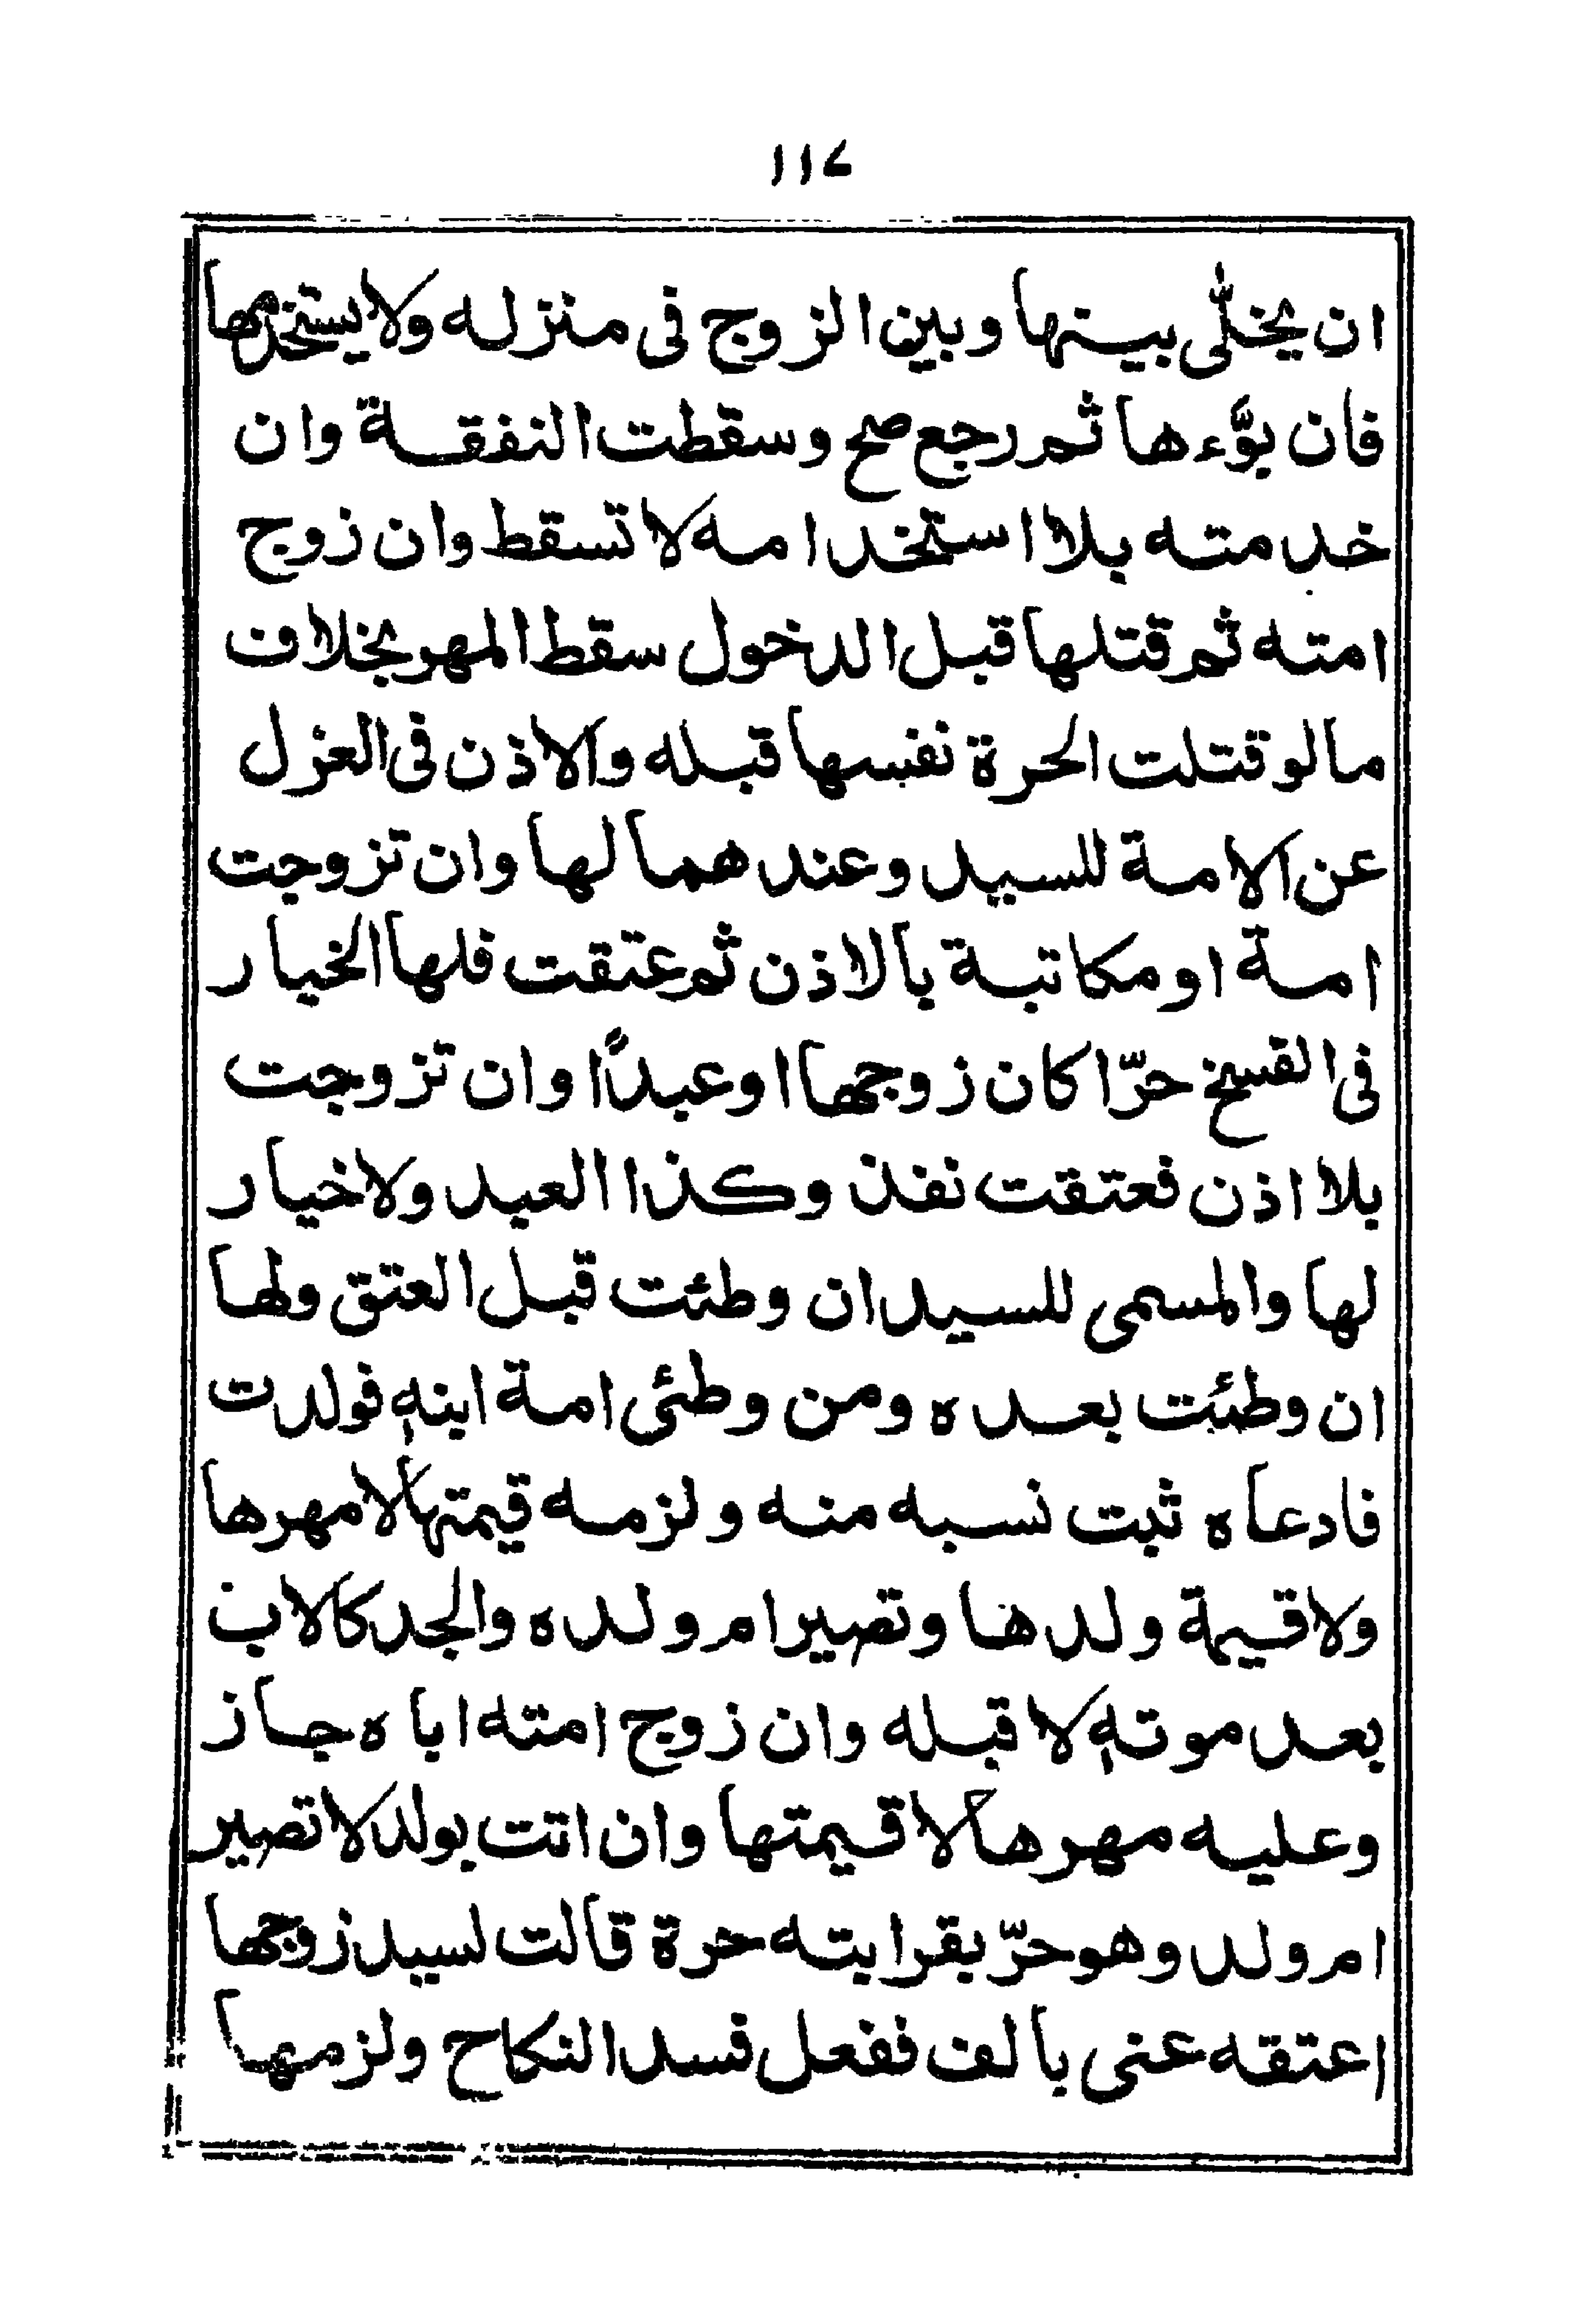 ١١٤
ان يخلّى بينها وبين الزوج فى منزله ولا يستخدمها
فان بوّءها ثم رجع صح وسقطت النفقة وان
خدمته بلا استخدامه لا تسقط وان زوج
امته ثم قتلها قبل الدخول سقط المهر بخلاف
مالو قتلت الحرة نفسها قبله والاذن فى العزل
عن الامة للسيد وعندهما لها وان تزوجت
امة او مكاتبة بالاذن ثم عتقت فلها الخيار
فى الفسخ حرّا كان زوجها او عبداً وان تزوجت
بلا اذن فعتقت نفذ وكذا العبد ولا خيار
لها والمسمى للسيد ان وطئت قبل العتق ولها
ان وطئت بعده ومن وطئى امة ابنه فولدت
فادعاه ثبت نسبه منه ولزمه قيمتها لا مهرها
ولا قيمة ولدها وتصير ام ولده والجد كالاب
بعد موته لا قبله وان زوج امته اباه جاز
وعليه مهرها لا قيمتها وان اتت بولد لا تصير
ام ولد وهو حرّ بقرابته حرة قالت لسيد زوجها
اعتقه عنى بالف ففعل فسد النكاح ولزمها